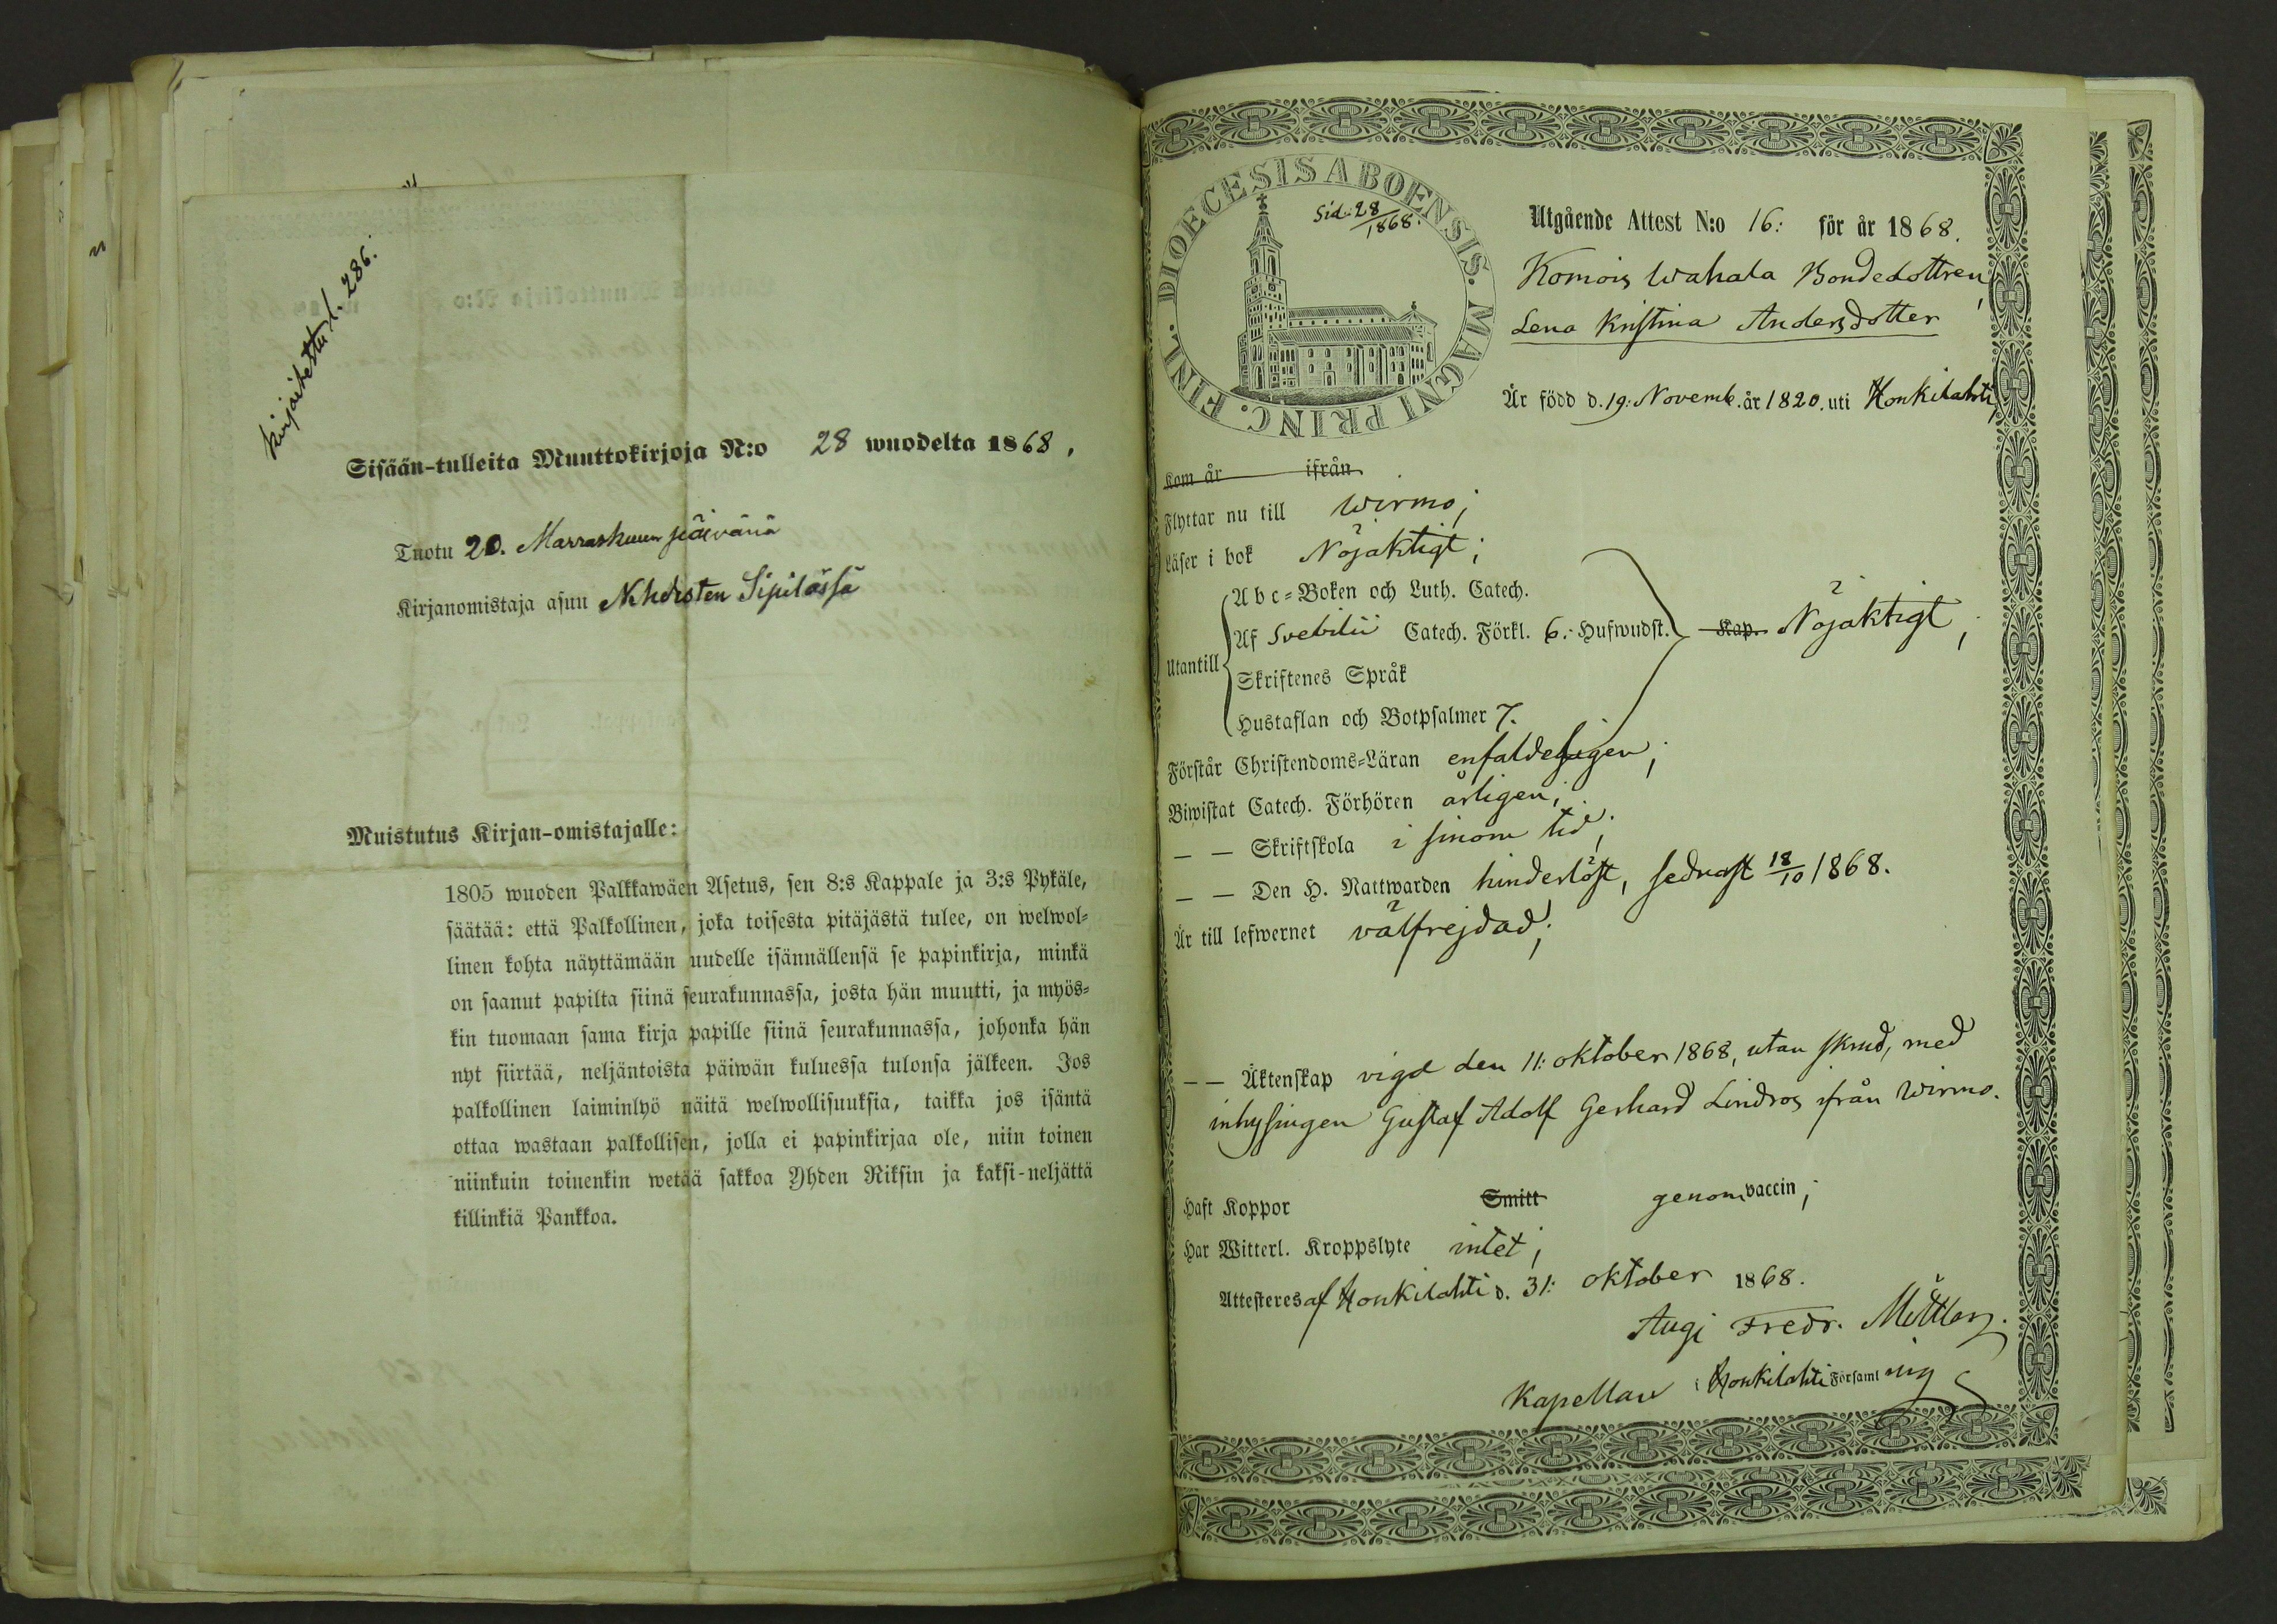 kirjoitettu l. 286.
Sisään-tulleita Muuttokirjoja N:o 28 wuodelta 1868,
Tuotu 20. Marraskuun päivänä
Kirjanomistaja asuu Nehdosten Sipilässä
Muistutus Kirjan-omistajalle:
1805 wuoden Palkkawäen Asetus, sen 8:s Kappale ja 3:s Pykäle,
säätää: että Palkollinen, joka toisesta pitäjästä tulee, on welwol-
linen kohta näyttämään uudelle isännällensä se papinkirja, minkä
on saanut papilta siinä seurakunnassa, josta hän muutti, ja myös-
kin tuomaan sama kirja papille siinä seurakunnassa, johonka hän
nyt siirtää, neljäntoista päiwän kuluessa tulonsa jälkeen. Jos
palkollinen laiminlyö näitä welwollisuuksia, taikka jos isäntä
ottaa wastaan palkollisen, jolla ei papinkirjaa ole, niin toinen
niinkuin toinenkin wetää sakkoa Yhden Riksin ja kaksi-neljättä
killinkiä Pankkoa.
FINL. DIOECESIS ABOENSIS. MAGNI PRINC.
Sid. 28/1868.
Utgående Attest N:o 16: för år 1868.
Komois Wahala Bondedottren,
Lena Kristina Andersdotter
Är född d. 19: Novemb. år 1820. uti Honkilahti
Kom år ifrån
Flyttar nu till Wirmo;
Läser i bok Nöjaktigt;
Utantill
Abc-Boken och Luth. Catech.
Af Svebilii Catech. Förkl. 6. Hufwudst. Kap. Nöjaktigt;
Skriftenes Språk
Hustaflan och Botpsalmer 7.
Förstår Christendoms-Läran enfaldeligen;
Biwistat Catech. Förhören årligen;
— — Skriftskola i sinom tid;
— — Den H. Nattwarden hinderlöst, sednast 18/10 1868.
Är till lefwernet välfrejdad;
— — Äktenskap vigd den 11: oktober 1868, utan skrud, med
inhysingen Gustaf Adolf Gerhard Lindros ifrån Wirmo.
Haft Koppor Smitt genom vaccin;
Har Witterl. Kroppslyte intet;
Attesteres af Honkilahti d. 31: oktober 1868.
Fredr.
Kapellan i Honkilahti Församlning